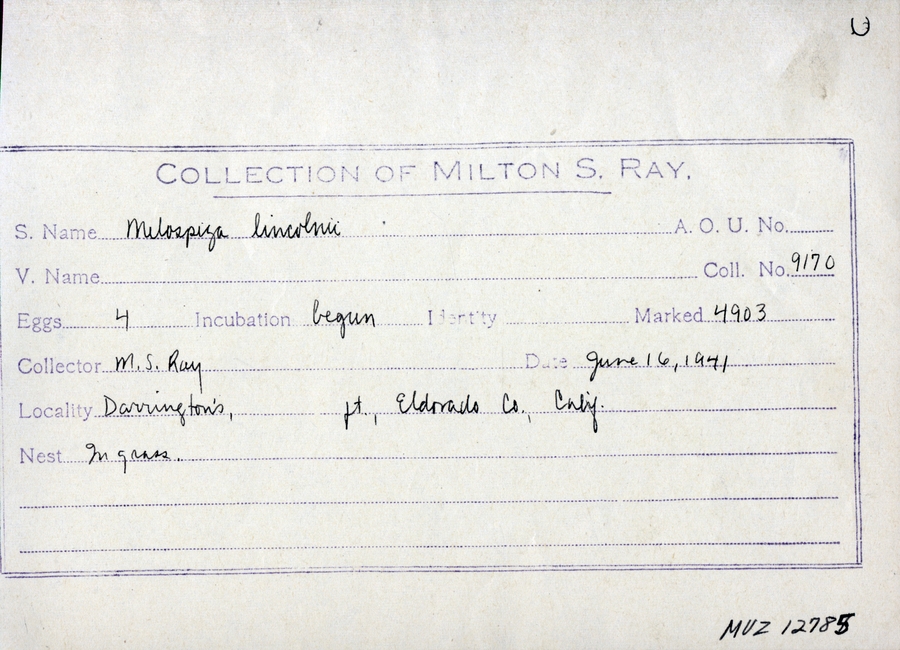 COLLECTION OF MILTON S. RAY.
S. Name Melospiza lincolnii A. O. U. No.
V. Name Coll. No. 9170
Eggs 4 Incubation begun Identity Marked 4903
Collector M. S. Ray Date June 16, 1941
Locality Darrington's, ft, Eldorado Co., Calif.
Nest In grass.
MVZ 12785